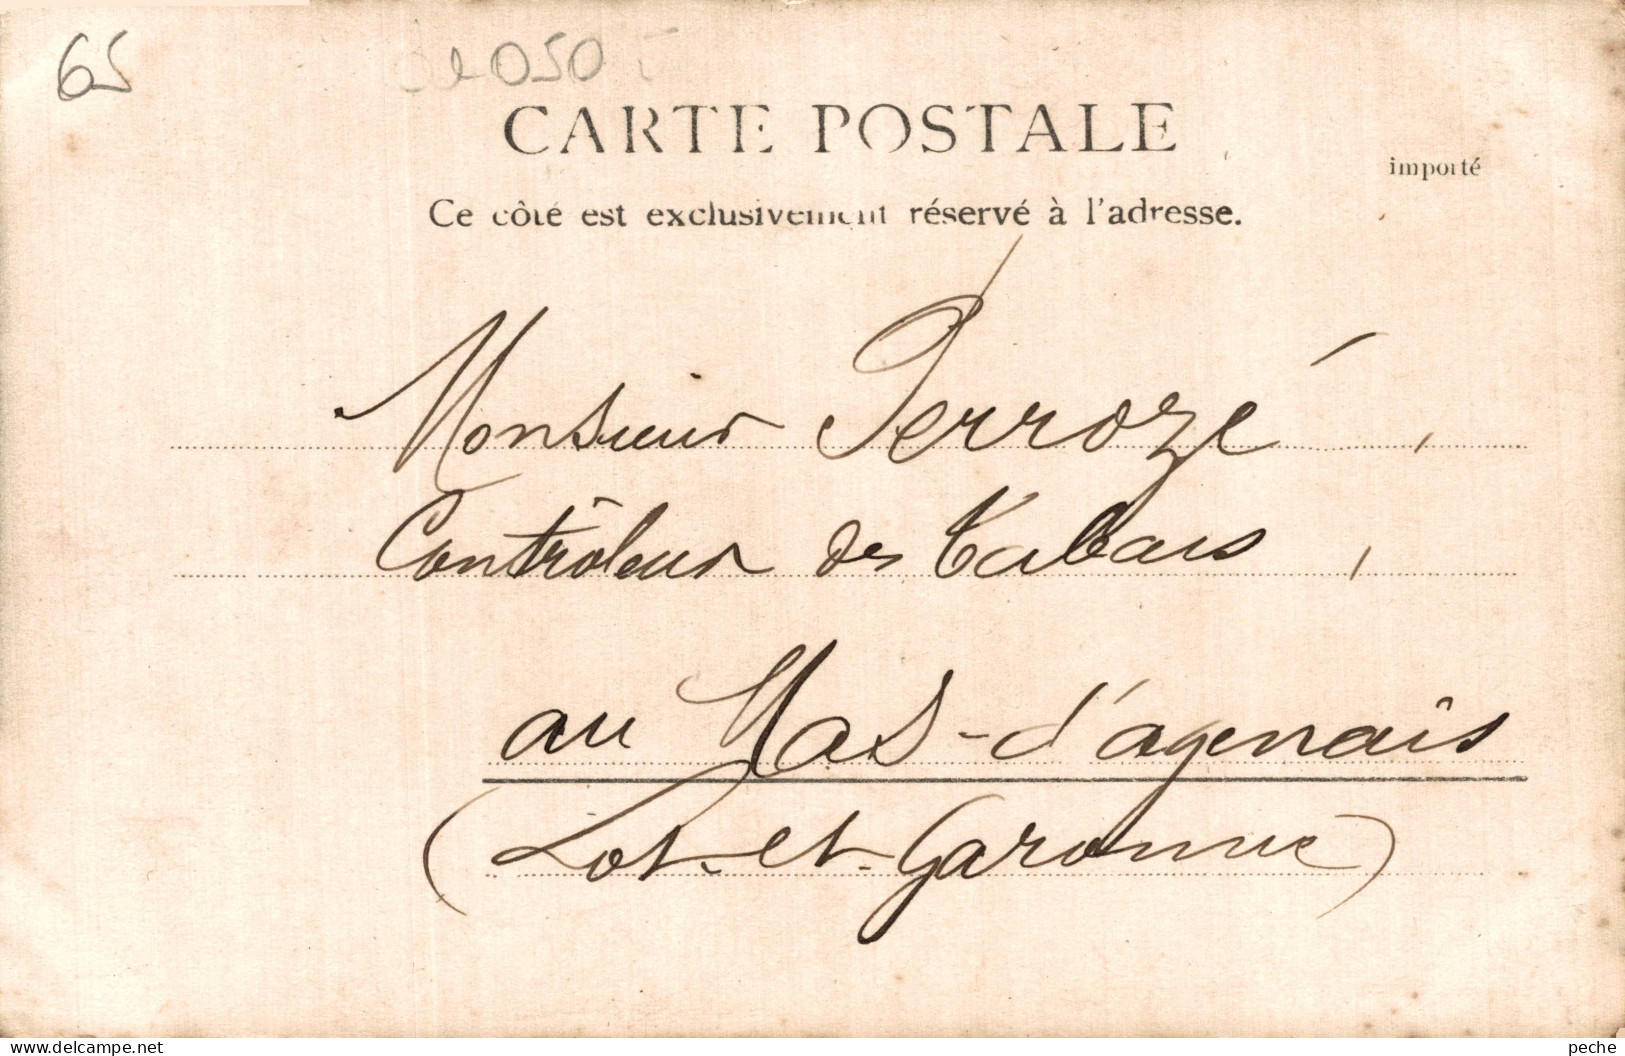 65
050
CARTE POSTALE
importé
Ce côté est exclusivement réservé à l'adresse.
Monsieur Perrozé,
Contrôleur des Tabacs,
au Mas-d'agenais
(Lot-et-Garonne)
peche